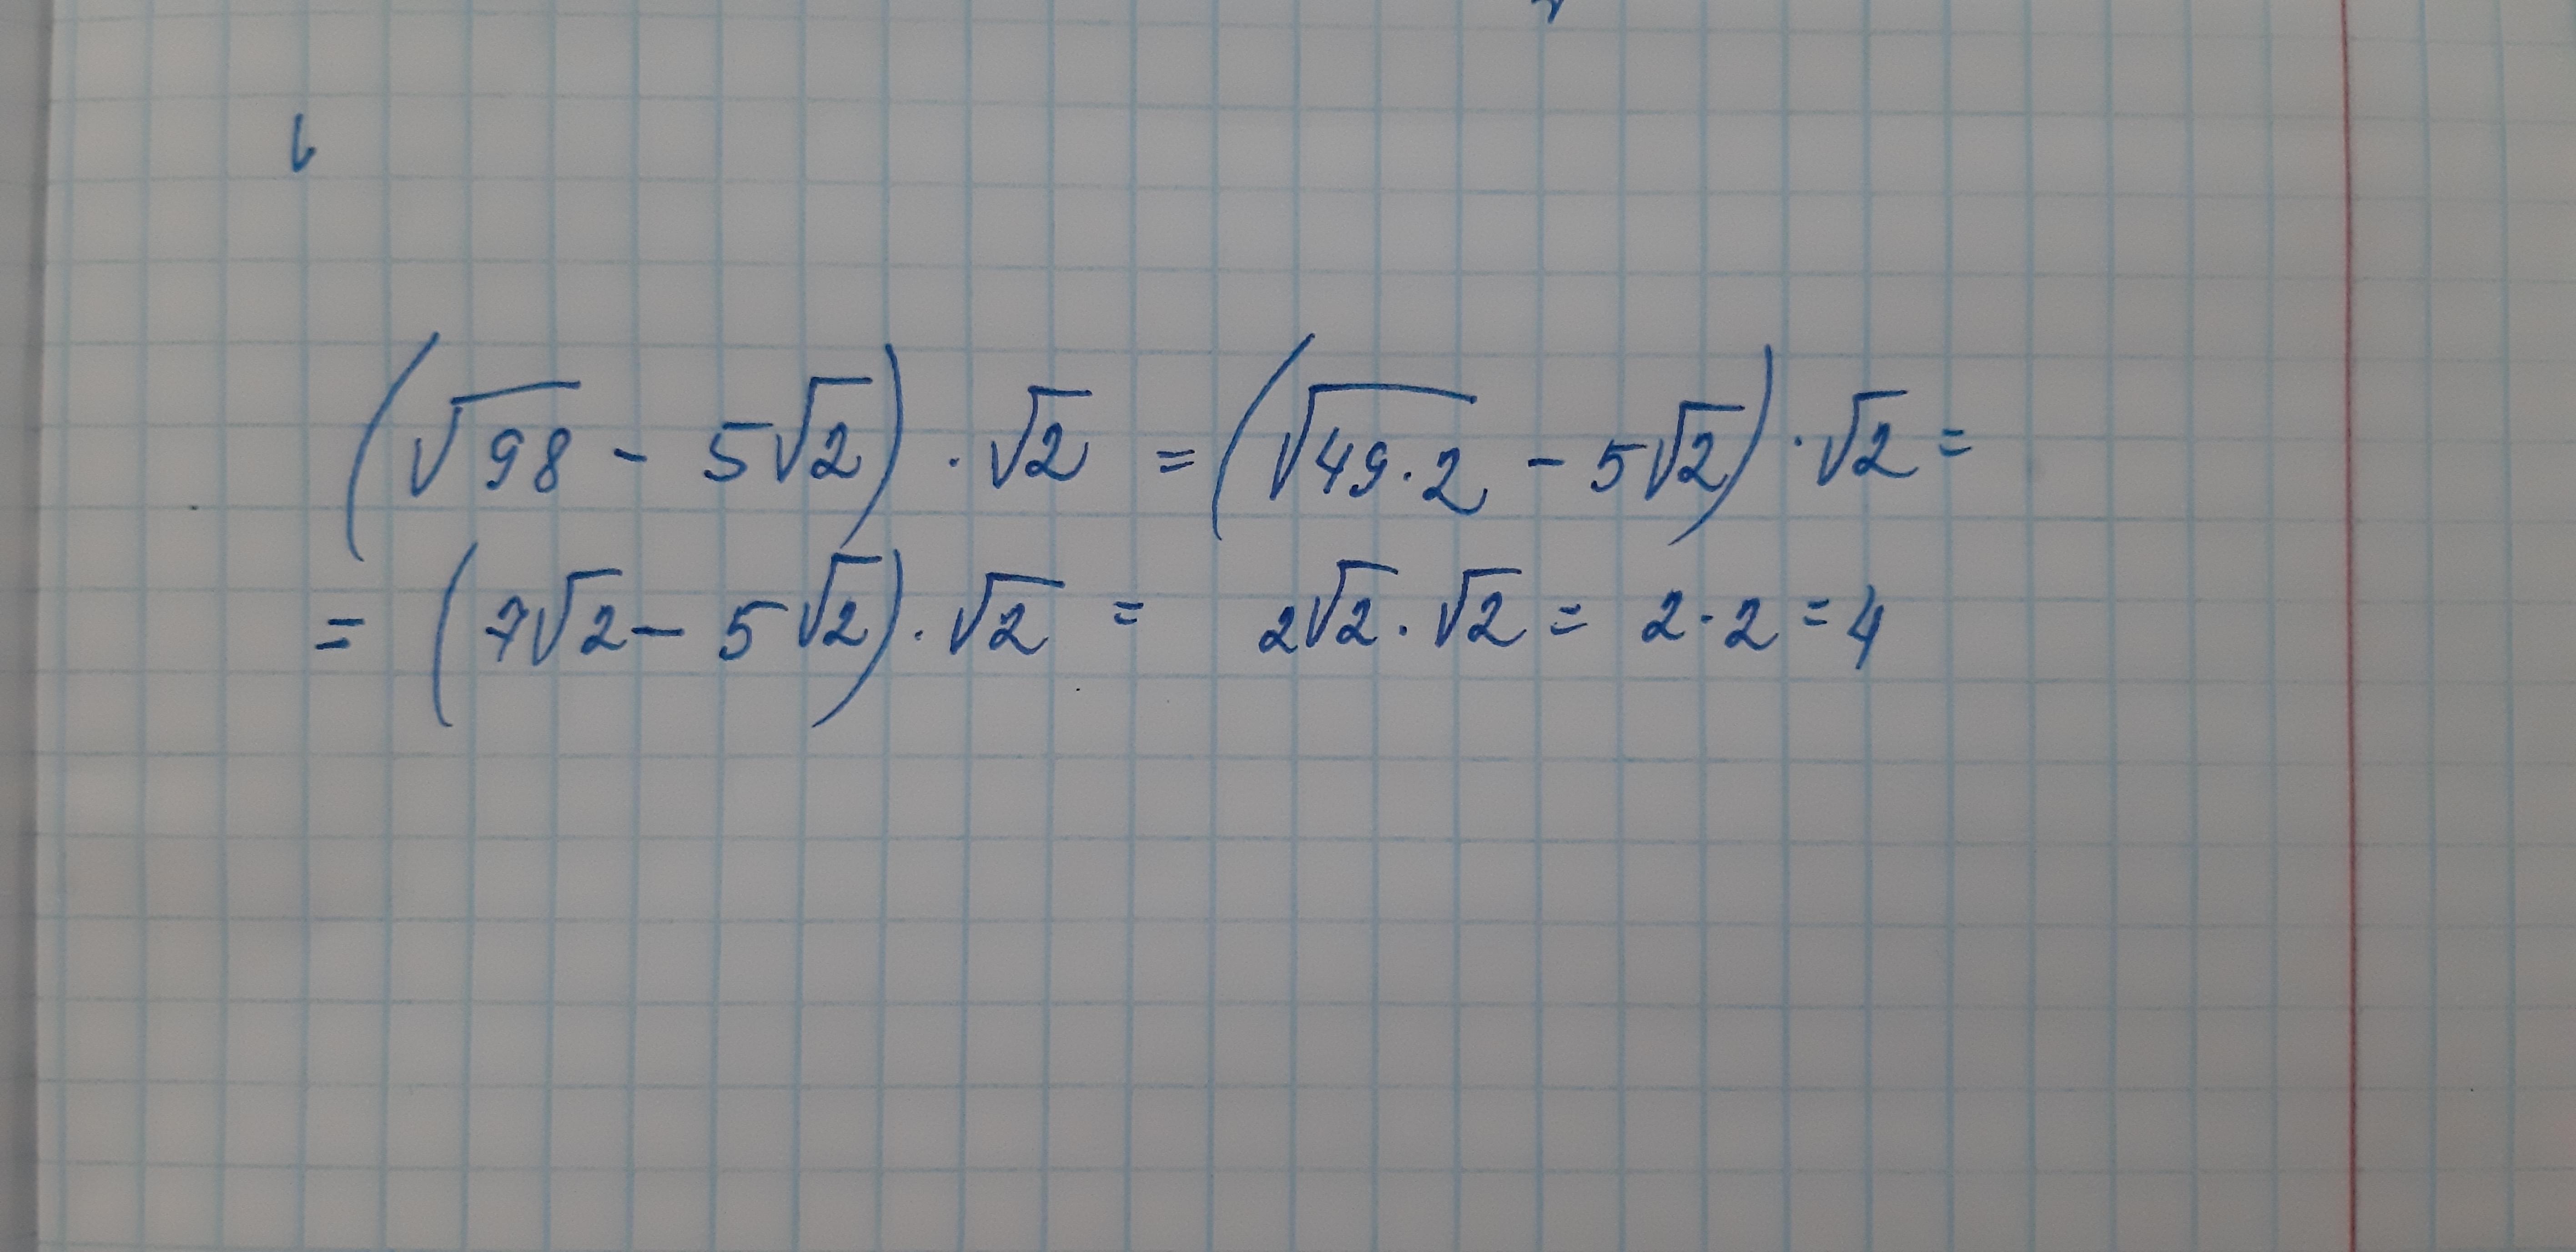 (√98 - 5√2) · √2 = (√49·2 - 5√2) · √2 =
= (7√2 - 5√2) · √2 = 2√2 · √2 = 2·2 = 4